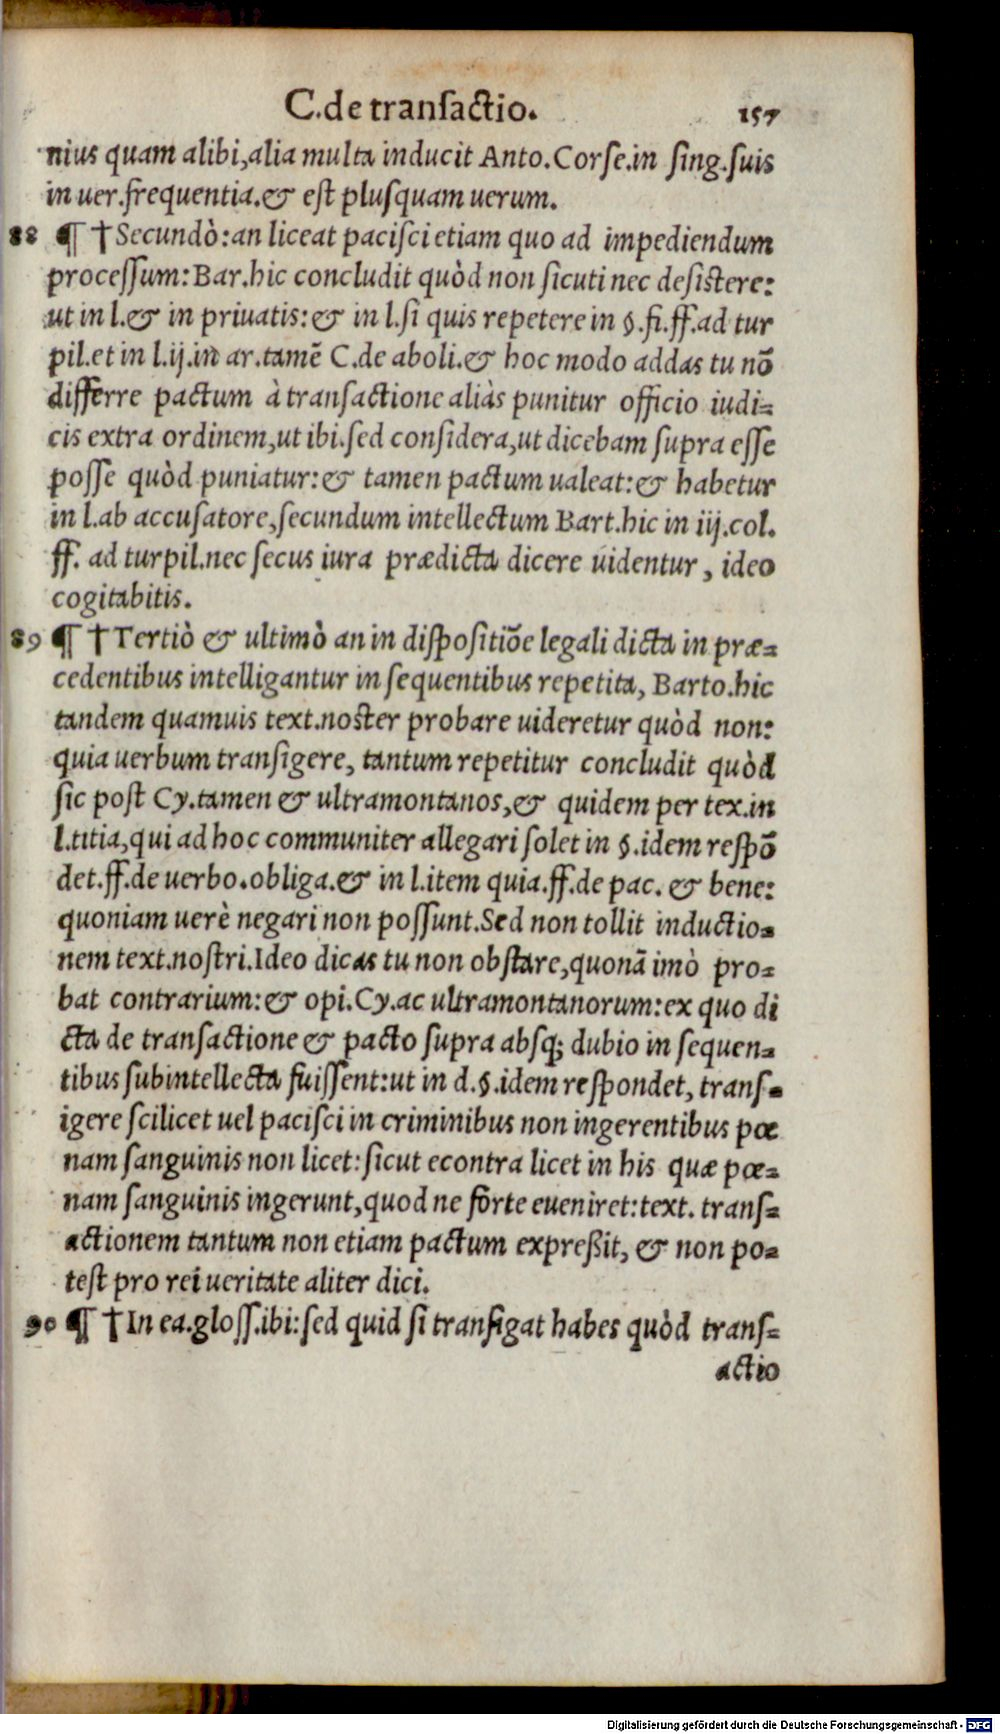 C. de transactio. 157
nius quam alibi, alia multa inducit Anto. Corse. in sing. suis
in uer. frequentia. & est plusquam uerum.
88 ¶ †Secundò: an liceat pacisci etiam quo ad impediendum
processum: Bar. hic concludit quòd non sicuti nec desistere:
ut in l. & in priuatis: & in l. si quis repetere in §. fi. ff. ad tur
pil. et in l. ij. in ar. tamē C. de aboli. & hoc modo addas tu nō
differre pactum à transactione aliàs punitur officio iudi-
cis extra ordinem, ut ibi. sed considera, ut dicebam supra esse
posse quòd puniatur: & tamen pactum ualeat: & habetur
in l. ab accusatore, secundum intellectum Bart. hic in iij. col.
ff. ad turpil. nec secus iura prædicta dicere uidentur, ideo
cogitabitis.
89 ¶ †Tertiò & ultimò an in dispositiōe legali dicta in præ-
cedentibus intelligantur in sequentibus repetita, Barto. hic
tandem quamuis text. noster probare uideretur quòd non:
quia uerbum transigere, tantum repetitur concludit quòd
sic post Cy. tamen & ultramontanos, & quidem per tex. in
l. titia, qui ad hoc communiter allegari solet in §. idem respō
det. ff. de uerbo. obliga. & in l. item quia. ff. de pac. & bene:
quoniam uerè negari non possunt. Sed non tollit inductio-
nem text. nostri. Ideo dicas tu non obstare, quonā imò pro-
bat contrarium: & opi. Cy. ac ultramontanorum: ex quo di
cta de transactione & pacto supra absq; dubio in sequen-
tibus subintellecta fuissent: ut in d. §. idem respondet, trans-
igere scilicet uel pacisci in criminibus non ingerentibus pœ
nam sanguinis non licet: sicut econtra licet in his quæ pœ-
nam sanguinis ingerunt, quod ne forte eueniret: text. trans-
actionem tantum non etiam pactum expreßit, & non po-
test pro rei ueritate aliter dici.
90 ¶ †In ea. gloss. ibi: sed quid si transigat habes quòd trans-
actio
Digitalisierung gefördert durch die Deutsche Forschungsgemeinschaft - DFG